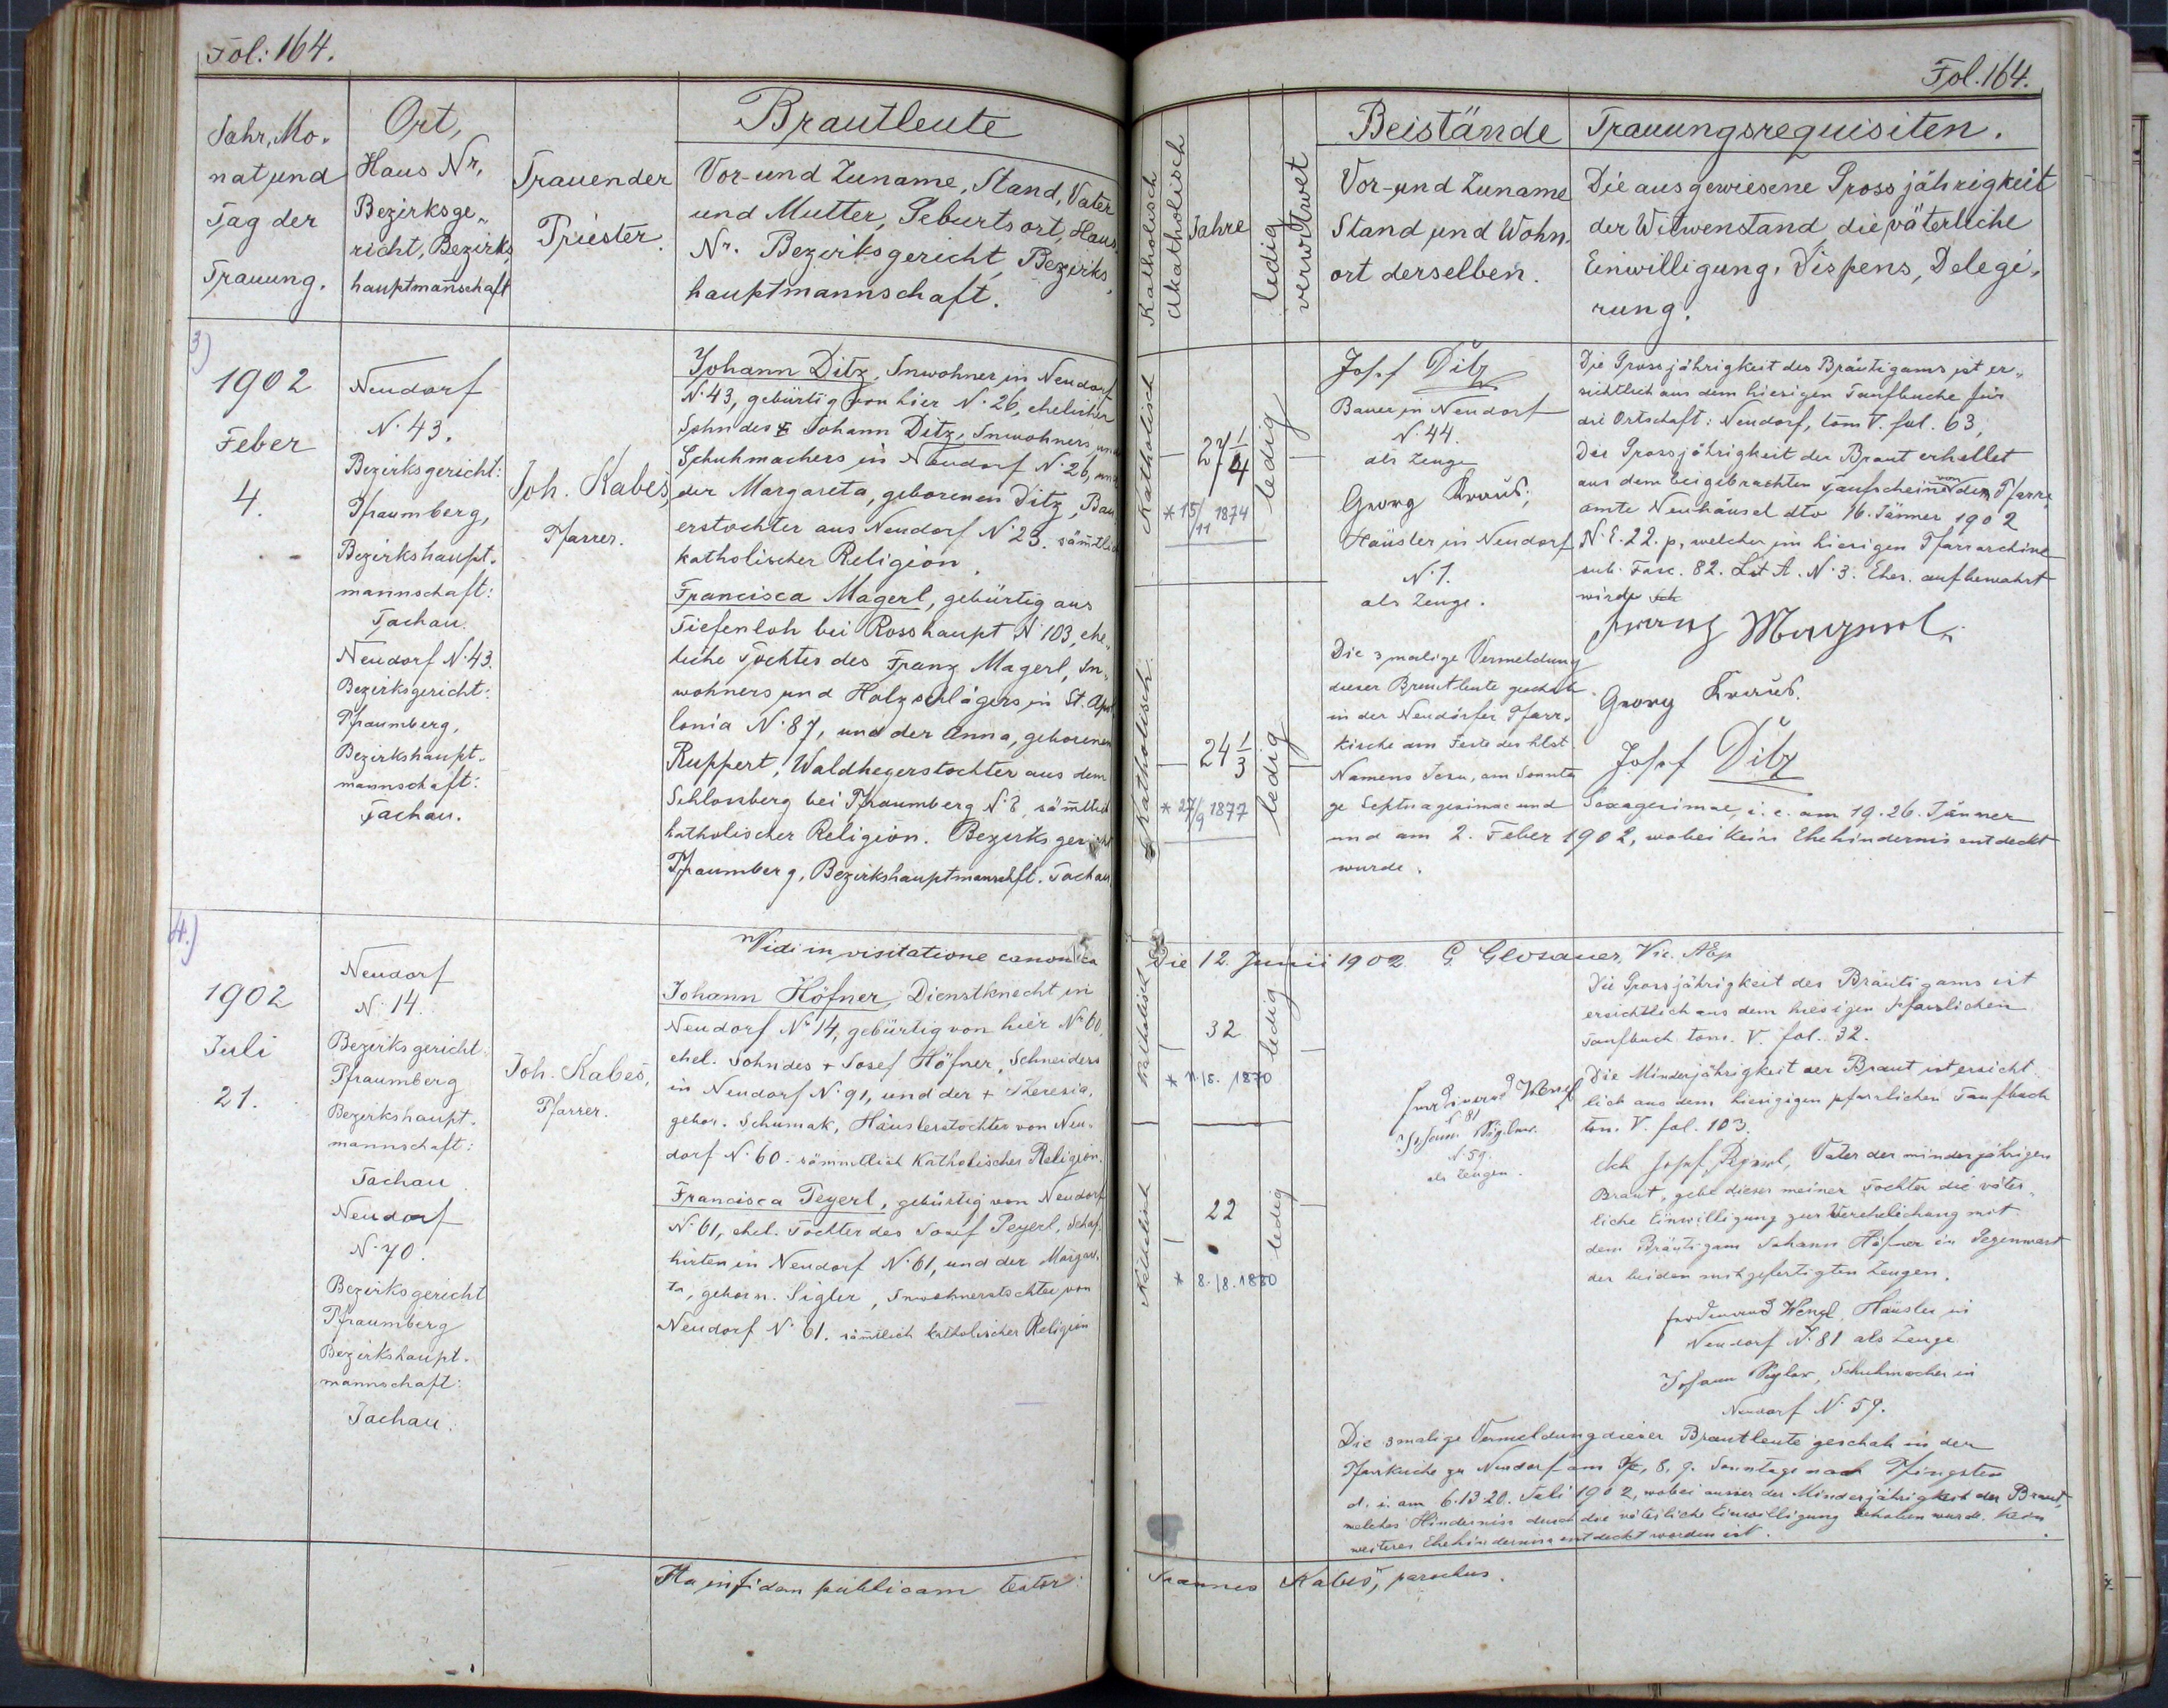 Fol: 164.
Jahr, Mo-
nat und
Tag der
Trauung.
Ort,
Haus Nr,
Bezirksge-
richt, Bezirks
hauptmannschaft
Trauender
Priester.
Brautleute
Vor- und Zuname, Stand, Vater
und Mutter, Geburtsort, Haus
Nr. Bezirksgericht, Bezirks-
hauptmannschaft.
3)
1902
Feber
4.
Neudorf
N. 43.
Bezirksgericht:
Pfraumberg,
Bezirkshaupt-
mannschaft:
Tachau.
Neudorf N. 43.
Bezirksgericht:
Pfraumberg,
Bezirkshaupt-
mannschaft:
Tachau.
Joh. Kabeš,
Pfarrer.
Johann Ditz, Inwohner in Neudorf
N. 43, gebürtig von hier N. 26, ehelicher
Sohn des Johann Ditz, Inwohners und
Schuhmachers in Neudorf N. 26, und
der Margareta, geborenen Ditz, Bau
erstochter aus Neudorf N. 23. säm̄tlich
katholischer Religion.
Francisca Magerl, gebürtig aus
Tiefenloh bei Rosshaupt N 103, ehe-
liche Tochter des Franz Magerl, In-
wohners und Holzschlägers in St. Apol
lonia N. 87, und der Anna, geborenen
Ruppert, Waldhegerstochter aus dem
Schlossberg bei Pfraumberg N. 8, säm̄tlich
katholischer Religion. Bezirksgericht
Pfraumberg, Bezirkshauptmannschft. Tachau.
4.)
1902
Juli
21.
Neudorf
N. 14.
Bezirksgericht:
Pfraumberg
Bezirkshaupt-
mannschaft:
Tachau
Neudorf
N. 70.
Bezirksgericht
Pfraumberg
Bezirkshaupt-
mannschaft:
Tachau.
Joh. Kabeš,
Pfarrer.
Vidi in visitatione canonica
Johann Höfner, Dienstknecht in
Neudorf Nr 14, gebürtig von hier Nr 60,
ehel. Sohn des + Josef Höfner, Schneiders
in Neudorf N. 91, und der + Theresia,
gebor. Schumak, Häuslerstochter von Neu-
dorf N. 60. sämmtlich katholischer Religion.
Francisca Peyerl, gebürtig von Neudorf
N. 61, ehel. Tochter des Josef Peyerl, Schaf-
hirten in Neudorf N. 61, und der Margar.
ta, geborn. Sigler, Inwohnerstochter von
Neudorf N. 61. säm̄tlich katholischer Religion
Ita in fidem publicam testor:
Fol. 164.
Katholisch
Akatholisch
Jahre
ledig
verwitwet
Beistände
Vor- und Zuname
Stand und Wohn-
ort derselben.
Trauungsrequisiten.
Die ausgewiesene Grossjährigkeit
der Witwenstand die väterliche
Einwilligung, Dispens, Delegi-
rung.
Katholisch
27 1/4
* 15/11 1874
ledig
Josef Ditz
Bauer in Neudorf
N. 44.
als Zeuge
Georg Kraus,
Häusler in Neudorf
N. 1.
als Zeuge.
Die Grossjährigkeit des Bräutigams ist er-
sichtlich aus dem hiesigen Taufbuche für
die Ortschaft: Neudorf, tom V. fol. 63,
Die Grossjährigkeit der Braut erhellet
aus dem beigebrachten Taufscheine von dem Pfarr-
amte Neuhäusel dto 16. Jänner 1902
N. E. 22. p, welcher im hiesigen Pfarrarchive
sub. Fasc. 82. Lit A. N. 3. Ehes. aufbewahrt
wird.
Franz Magerl
Georg Kraus.
Josef Ditz
Katholisch
24 1/3
* 27/9 1877
ledig
Die 3malige Vermeldung
dieser Brautleute geschah
in der Neudörfer Pfarr-
kirche am Feste des hlst.
Namens Jesu, am Sonnta
ge Septuagesimae und Sexagesimae, i. e. am 19. 26. Jänner
und am 2. Feber 1902, wobei kein Ehehindernis entdeckt
wurde.
Die 12. Junii 1902 G. Glosauer, Vic. AEp
Katholisch
32
* 11./8. 1870
ledig
Ferdinand Wenzl
N 81
Johann Siglar.
N. 59.
als Zeugen.
Die Grossjährigkeit des Bräutigams ist
ersichtlich aus dem hiesigen pfarrlichen
Taufbuch tom. V. fol. 32.
Die Minderjährigkeit der Braut ist ersicht
lich aus dem hiesigen pfarrlichen Taufbuch
tom. V. fol. 103.
Ich Josef Peyerl, Vater der minderjährigen
Braut, gebe dieser meiner Tochter die väter-
liche Einwilligung zur Verehelichung mit
dem Bräutigam Johann Höfner in Gegenwart
der beiden mitgefertigten Zeugen.
Ferdinand Wenzl, Häusler in
Neudorf N. 81 als Zeuge
Johann Siglar, Schuhmacher in
Neudorf N. 59.
Katholisch
22
* 8./8. 1880
ledig
Die 3malige Vermeldung dieser Brautleute geschah in der
Pfarrkirche zu Neudorf am 7, 8, 9. Sonntage nach Pfingsten
d. i. am 6. 13 20. Juli 1902, wobei ausser der Minderjährigkeit der Braut,
welches Hinderniss durch die väterliche Einwilligung behoben wurde. kein
weiteres Ehehinderniss entdeckt worden ist.
Joannes Kabeš, parochus.